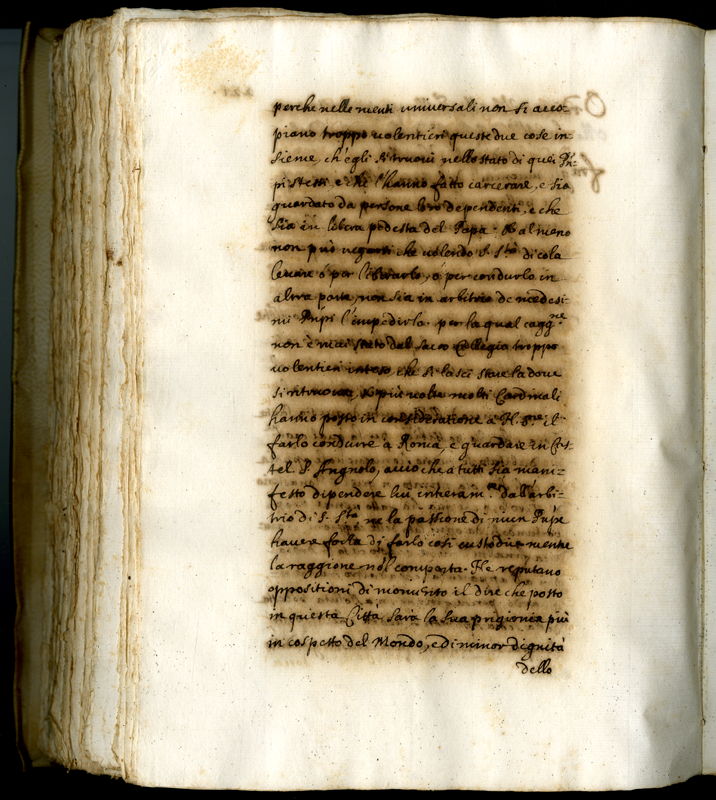 perche nelle menti universali non si acco-
piano troppo volentieri queste due cose in-
sieme, ch'egli si truovi nello stato di quei Pñ-
pi stessi, e chi l'hanno fatto carcerare, e sia
guardato da persone loro dependenti, e che
sia in libera podestà del Papa. O almeno
non può negarsi che volendo S. Stà di colà
levare ó per liberarlo, ó per condurlo in
altra parte, non sia in arbitrio de medesi-
mi Pñpi l'impedirla. per la qual cagg.ne
non è mai stato dal Sacro Collegio troppo
volentieri inteso che si lasci stare la dove
si ritruova, e più volte molti Cardinali
hanno posto in consideratione a N. Sre il
farlo condurre à Roma, e guardare in Cas-
tel S. Angnolo, accio che a tutti sia mani-
festo dipendere lui intieram.te dall'arbi-
trio di S. Stà ne la passione di niun Pñpe
havere forza di farlo così custodire mentre
la raggione nol comporta. Ne reputano
oppositioni di momento il dire che posto
in questa Città sarà la sua prigionia più
in cospetto del Mondo, e di minor dignità
dello